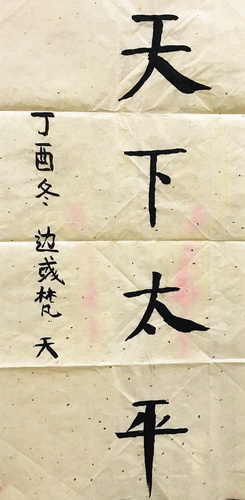 天下太平
丁酉冬 边彧梵 天